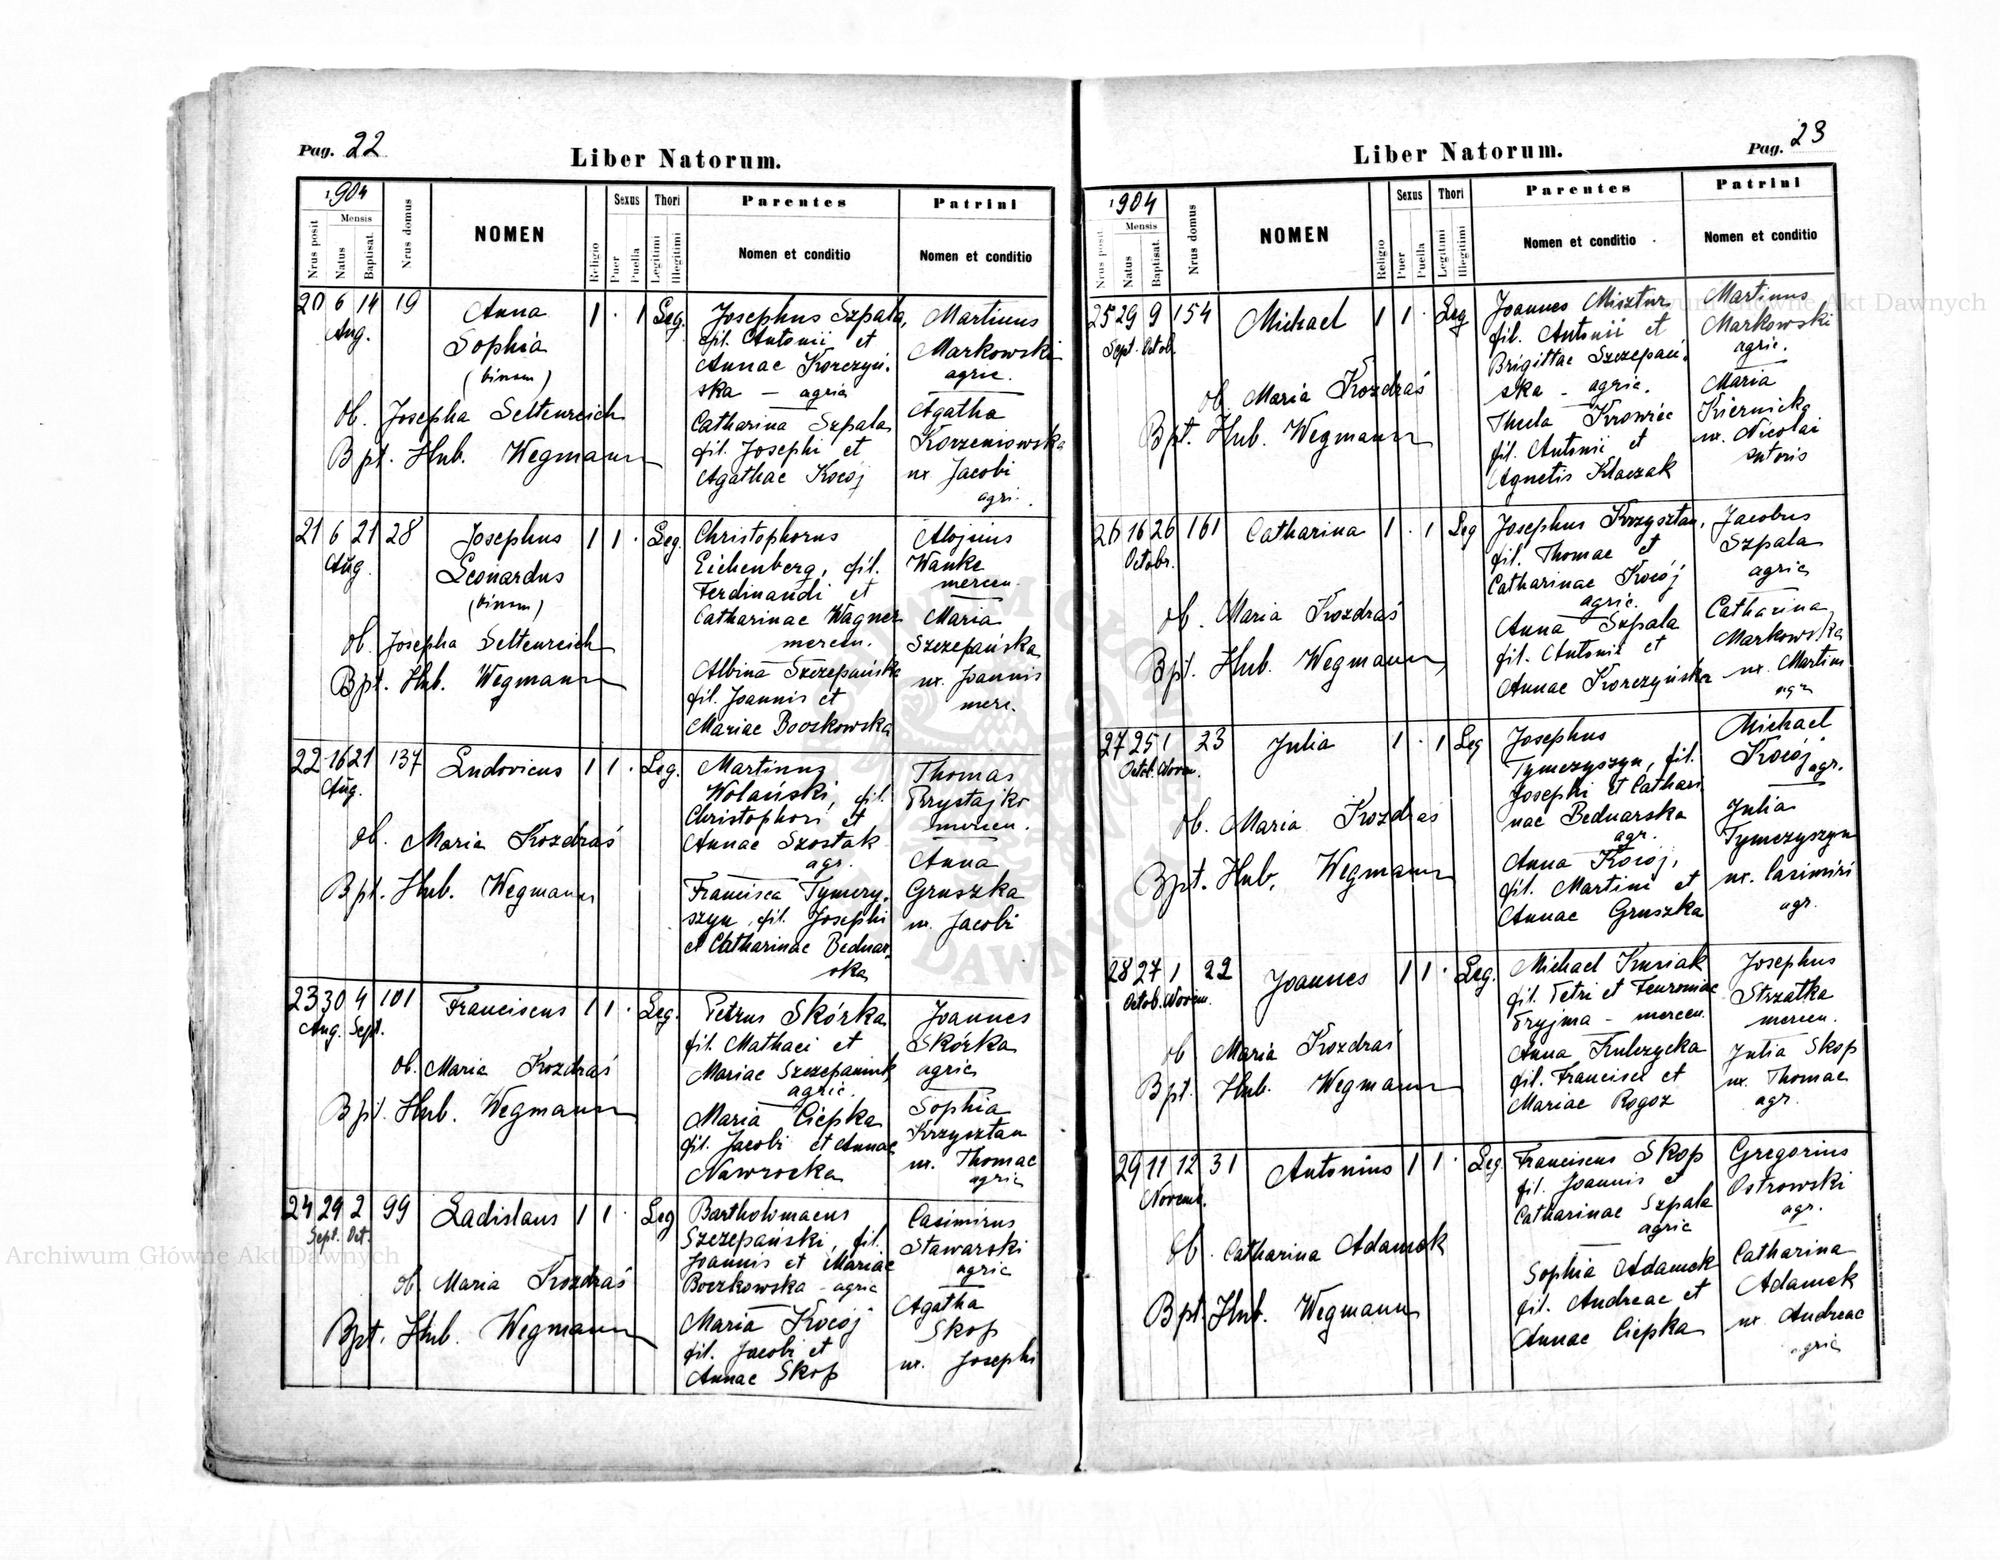 Pag. 22
Liber Natorum.
1904
Nrus posit
Mensis
Natus
Baptisat.
Nrus domus
NOMEN
Religio
Sexus
Puer
Puella
Thori
Legitimi
Illegitimi
Parentes
Nomen et conditio
Patrini
Nomen et conditio
20 6 14 19
Aug.
Anna
Sophia
(binom)
1 · 1 Leg.
ob. Josepha Seltenreich
Bpt. Hub. Wegmann
Josephus Szpala,
fil. Antonii et
Annae Korczyń-
ska — agric
Catharina Szpala
fil. Josephi et
Agathae Kocój
Martinus
Markowski
agric.
Agatha
Korzeniowska
ux Jacobi
agri.
21 6 21 28
Aug.
Josephus
Leonardus
(binom)
1 1 · Leg.
ob. Josepha Seltenreich
Bpt. Hub. Wegmann
Christophorus
Eichenberg, fil.
Ferdinandi et
Catharinae Wagner
mercen.
Albina Szczepańska
fil. Joannis et
Mariae Boczkowska
Alojsius
Wanke
mercen.
Maria
Szczepańska
ux. Joannis
merc.
22 16 21 137
Aug.
Ludovicus 1 1 · Leg.
ob. Maria Kozdraś
Bpt. Hub. Wegmann
Martinus
Wolański, fil.
Christophori et
Annae Szostak
agr.
Francisca Tymczy-
szyn, fil. Josephi
et Catharinae Bednar-
ska
Thomas
Przystajko
mercen.
Anna
Gruszka
ux. Jacobi
23 30 4 101
Aug. Sept.
Franciscus 1 1 · Leg.
ob. Maria Kozdraś
Bpt. Hub. Wegmann
Petrus Skórka
fil. Mathaei et
Mariae Szczepaniuk
agric.
Maria Ciepka
fil. Jacobi et Annae
Nawrocka
Joannes
Skórka
agric
Sophia
Krzysztan
ux. Thomae
agric
24 29 2 99
Sept. Oct.
Ladislaus 1 1 · Leg
ob. Maria Kozdraś
Bpt. Hub. Wegmann
Bartholomaeus
Szczepański, fil.
Joannis et Mariae
Boczkowska - agric
Maria Kocój
fil. Jacobi et
Annae Skop
Casimirus
Stawarski
agric
Agatha
Skop
ux. Josephi
Liber Natorum.
Pag. 23
1904
Nrus posit
Mensis
Natus
Baptisat.
Nrus domus
NOMEN
Religio
Sexus
Puer
Puella
Thori
Legitimi
Illegitimi
Parentes
Nomen et conditio
Patrini
Nomen et conditio
25 29 9 154
Sept. Octob.
Michael 1 1 · Leg
ob Maria Kozdraś
Bpt. Hub. Wegmann
Joannes Misztur
fil. Antonii et
Brigittae Szczepań-
ska — agric.
Thecla Krowiec
fil. Antonii et
Agnetis Kłaczak
Martinus
Markowski
agric.
Maria
Kiernicka
ux. Nicolai
sutoris
26 16 26 161
Octobr.
Catharina 1 · 1 Leg
ob. Maria Kozdraś
Bpt. Hub. Wegmann
Josephus Krzysztan,
fil. Thomae et
Catharinae Kocój
agric.
Anna Szpala
fil. Antonii et
Annae Korczyńska
Jacobus
Szpala
agric
Catharina
Markowska
ux. Martini
agr
27 25 1 23
Octob. Novem.
Julia 1 · 1 Leg
ob. Maria Kozdraś
Bpt. Hub. Wegmann
Josephus
Tymczyszyn, fil.
Josephi et Cathari
nae Bednarska
agr.
Anna Kocój,
fil. Martini et
Annae Gruszka
Michael
Kocój
agr.
Julia
Tymczyszyn
ux. Casimiri
agr.
28 27 1 22
Octob. Novem.
Joannes 1 1 · Leg.
ob Maria Kozdraś
Bpt. Hub. Wegmann
Michael Kuriak
fil. Petri et
Fryjma — mercen.
Anna Kulczycka
fil. Francisci et
Mariae Rogoz
Josephus
Strzałka
mercen.
Julia Skop
ux. Thomae
agr.
29 11 12 31
Novemb.
Antonius 1 1 · Leg
ob. Catharina Adamek
Bpt. Hub. Wegmann
Franciscus Skop
fil. Joannis et
Catharinae Szpala
agric
Sophia Adamek
fil. Andreae et
Annae Ciepka
Gregorius
Ostrowski
agr.
Catharina
Adamek
ux Andreae
agric
Archiwum Główne Akt Dawnych